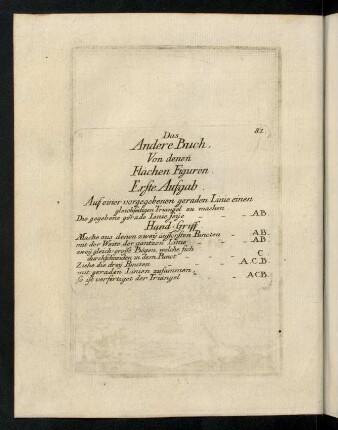 82.
Das
Andere Buch.
Von denen
Flächen Figuren.
Erste Aufgab.
Auf einer vorgegebenen geraden Linie einen
gleichseitigen Triangel zu machen
Die gegebene gerade Linie seye - - - AB.
Hand-Griff
Mache aus denen zweÿ äussersten Puncten - AB.
mit der Weite der gantzen Linie - - AB.
zweÿ gleich-grosse Bögen, welche sich
durchschneiden in dem Punct - - C.
Ziehe die dreÿ Puncten - - - A.C.B.
mit geraden Linien zusammen,
So ist verfertiget der Triangel - - ACB.